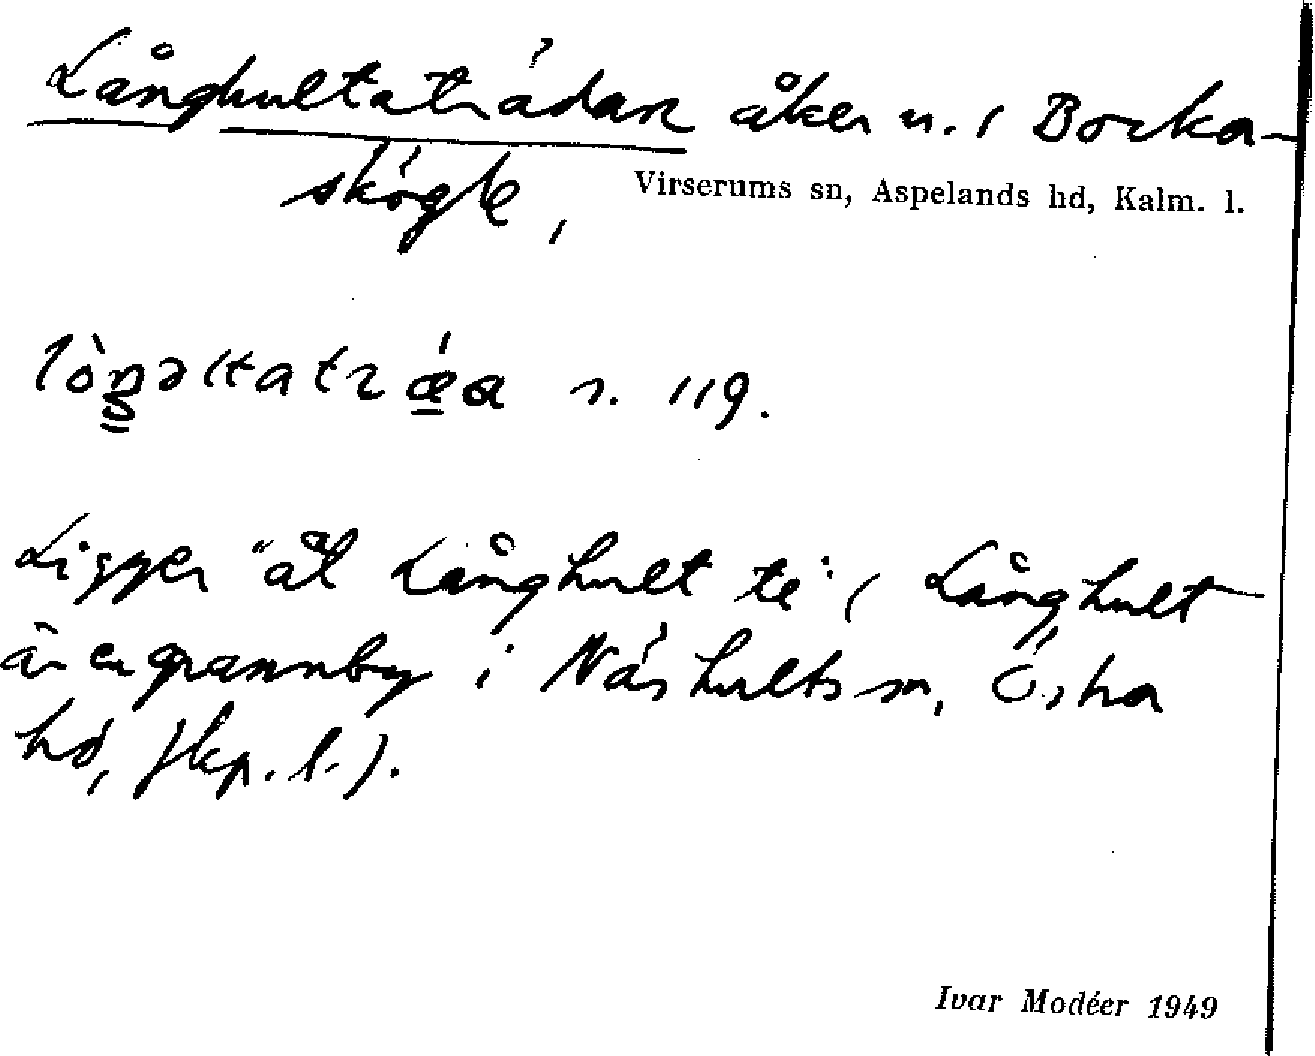 Långhultaträdan åker n. i Bocka-
skögle,
Virserums sn, Aspelands hd, Kalm. l.
n. 119.
Ligger "åt Långhult te" (Långhult
är en grannby i Näshults sn, Östra
hd, Jkp. l.).
Ivar Modéer 1949